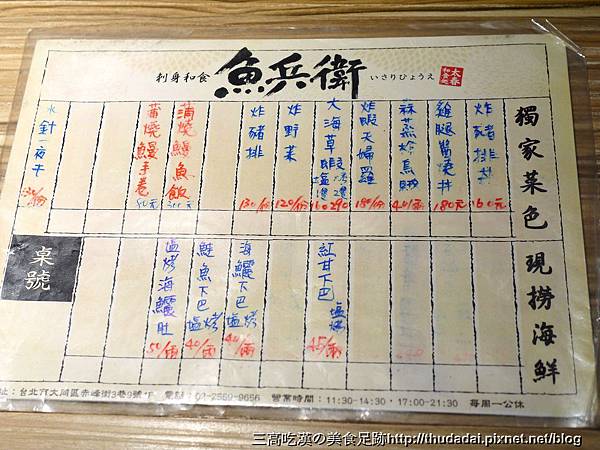 刺身和食
魚兵衛
いさりひょうえ
太春
和食処
獨家菜色
炸豬排丼
160元
雞腿醬燒丼
180元
蒜蒸炸烏賊
40/兩
炸蝦天婦羅
180/份
大海草蝦
炸野菜
120/份
炸豬排
130/份
蒲燒鰻魚飯
300元
蒲燒鰻手卷
80元
水針一夜干
現撈海鮮
紅甘下巴塩烤
45/兩
海鱺下巴塩烤
40/兩
鮭魚下巴塩烤
40/兩
塩烤海鱺肚
50/兩
桌號
址：台北市大同區赤峰街3巷9號1F
電話：02-2559-9656
營業時間：11:30-14:30，17:00-21:30
每周一公休
三高吃漢の美食足跡http://thudadai.pixnet.net/blog